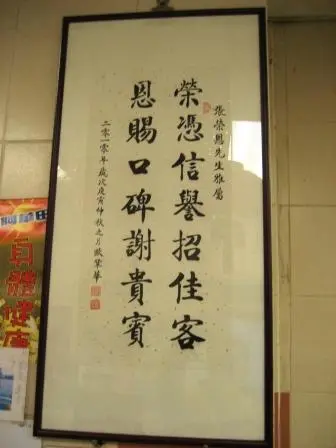 張榮恩先生雅屬
榮憑信譽招佳客
恩賜口碑謝貴賓
二〇一〇年歲次庚寅仲秋之月
阿華田
體健康